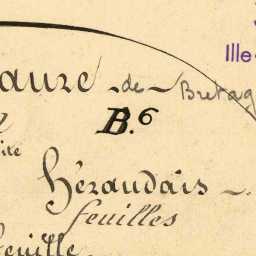 Ille-
aure de Bretag
B.6
Héraudais
feuilles
feuille